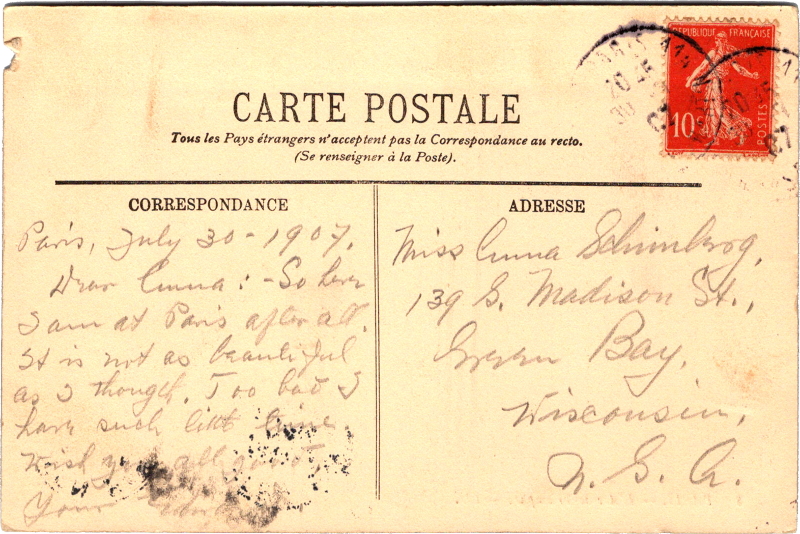 CARTE POSTALE
Tous les Pays étrangers n'acceptent pas la Correspondance au recto.
(Se renseigner à la Poste).
REPUBLIQUE FRANÇAISE
10c
POSTES
PARIS
07
CORRESPONDANCE
Paris, July 30-1907.
Dear Emma: - So here
I am at Paris after all.
It is not as beautiful
as I though. Too bad I
have such litt time.
Wish you all good
Your
ADRESSE
Miss Emma
139 S. Madison St.,
Green Bay,
Wisconsin,
U. S. A.